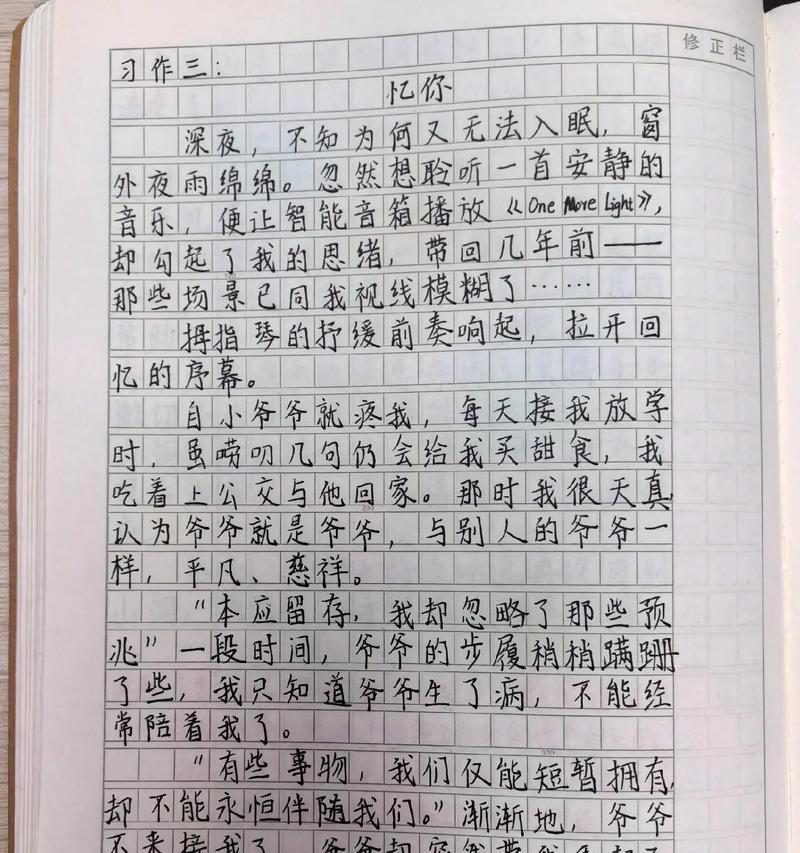 修正栏
习作三：
忆你
深夜，不知为何又无法入眠，窗
外夜雨绵绵。忽然想聆听一首安静的
音乐，便让智能音箱播放《One More Light》，
却勾起了我的思绪，带回几年前——
那些场景已同我视线模糊了……
拇指琴的抒缓前奏响起，拉开回
忆的序幕。
自小爷爷就疼我，每天接我放学
时，虽唠叨几句仍会给我买甜食，我
吃着上公交与他回家。那时我很天真
认为爷爷就是爷爷，与别人的爷爷一
样，平凡、慈祥。
“本应留存，我却忽略了那些预
兆”一段时间，爷爷的步履稍稍蹒跚
了些，我只知道爷爷生了病，不能经
常陪着我了。
“有些事物，我们仅能短暂拥有，
却不能永恒伴随我们。”渐渐地，爷爷
不来接我了